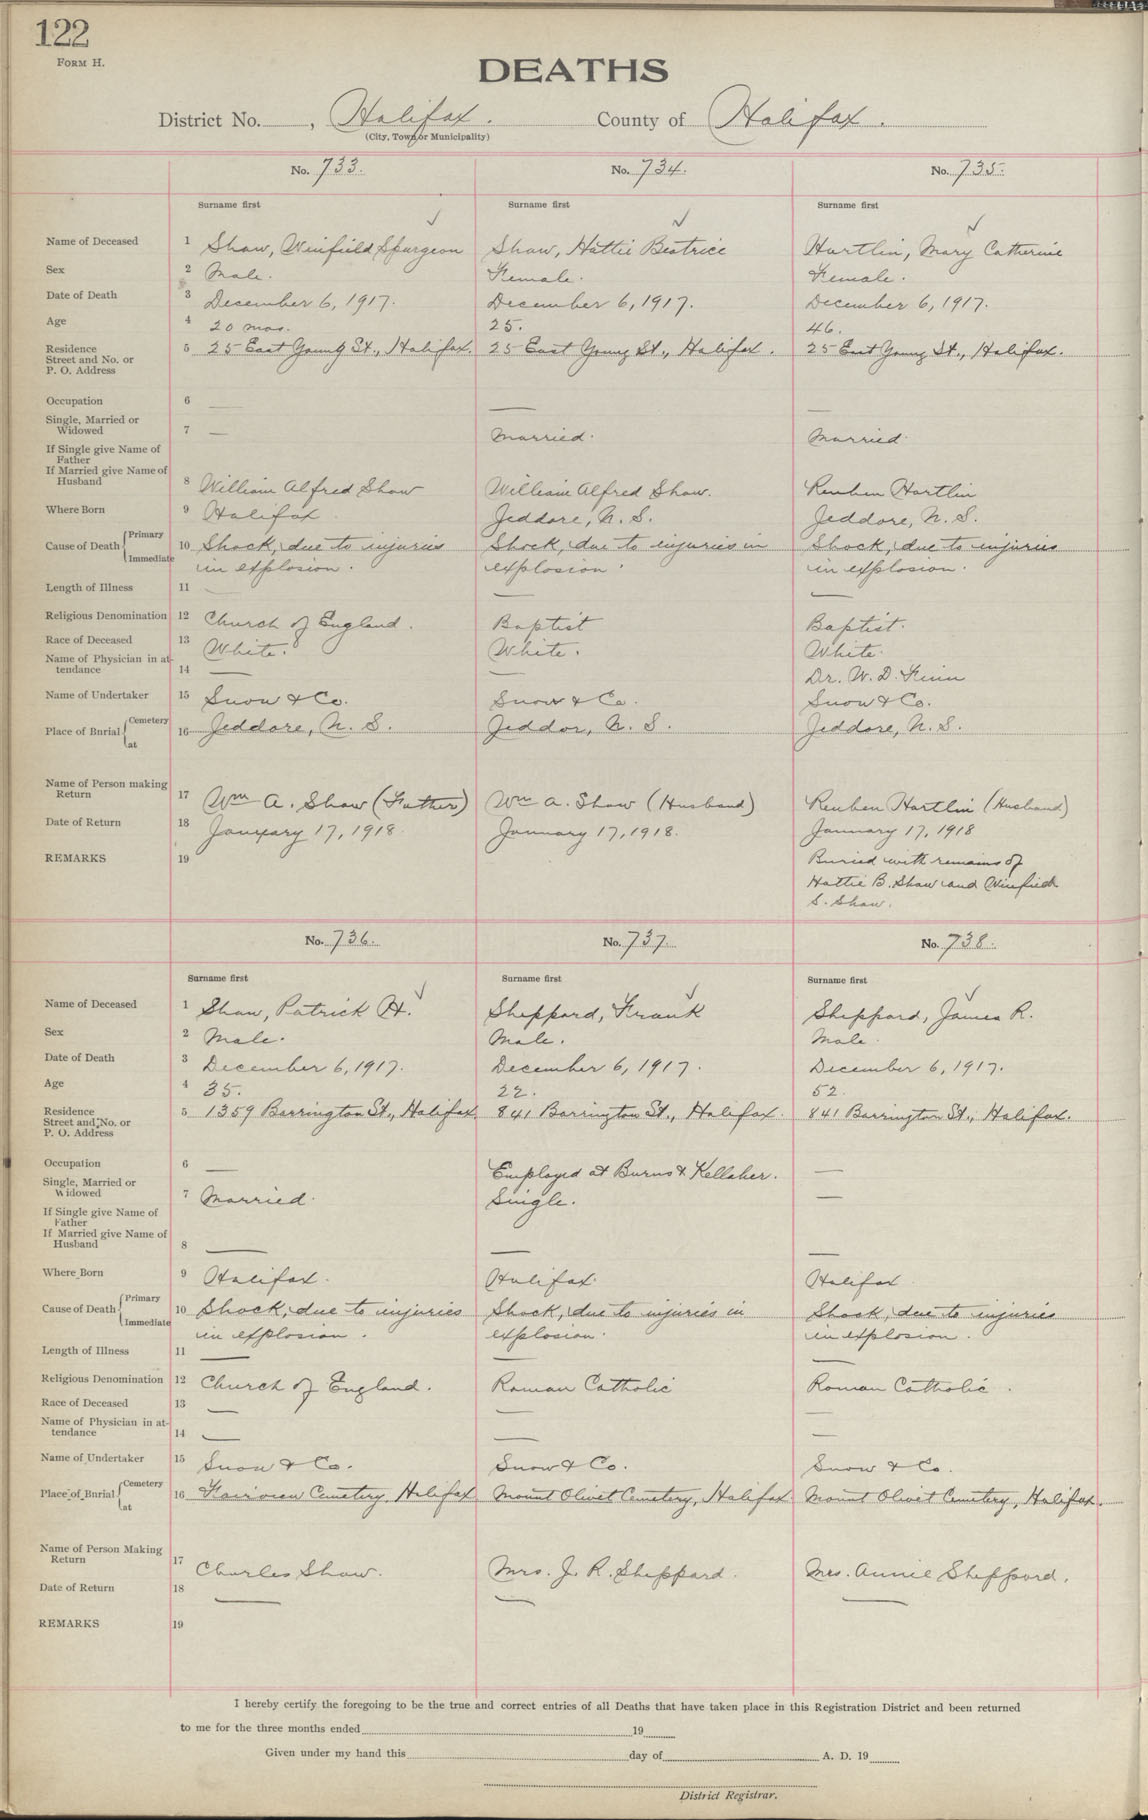 122
FORM H.
DEATHS
District No. , Halifax. County of Halifax.
(City, Town or Municipality)
No. 733. No. 734. No. 735.
Surname first Surname first Surname first
Name of Deceased 1 Shaw, Winfield Spurgeon Shaw, Hattie Beatrice Hartlin, Mary Catherine
Sex 2 Male. Female. Female.
Date of Death 3 December 6, 1917. December 6, 1917. December 6, 1917.
Age 4 20 mos. 25. 46.
Residence Street and No. or P. O. Address 5 25 East Young St., Halifax. 25 East Young St., Halifax. 25 East Young St., Halifax.
Occupation 6 — — —
Single, Married or Widowed 7 — Married. Married.
If Single give Name of Father
If Married give Name of Husband 8 William Alfred Shaw William Alfred Shaw. Reuben Hartlin
Where Born 9 Halifax Jeddore, N. S. Jeddore, N. S.
Cause of Death { Primary Immediate 10 Shock, due to injuries Shock, due to injuries in Shock, due to injuries
in explosion. explosion. in explosion.
Length of Illness 11 — — —
Religious Denomination 12 Church of England. Baptist Baptist.
Race of Deceased 13 White. White. White.
Name of Physician in attendance 14 — — Dr. W. D.
Name of Undertaker 15 Snow & Co. Snow & Co. Snow & Co.
Place of Burial { Cemetery at 16 Jeddore, N. S. Jeddor, N. S. Jeddore, N. S.
Name of Person making Return 17 Wm A. Shaw (Father) Wm A. Shaw (Husband) Reuben Hartlin (Husband)
Date of Return 18 January 17, 1918. January 17, 1918. January 17, 1918
REMARKS 19 Buried with remains of
Hattie B. Shaw and Winfield
S. Shaw.
No. 736. No. 737. No. 738.
Surname first Surname first Surname first
Name of Deceased 1 Shaw, Patrick H. Sheppard, Frank Sheppard, James R.
Sex 2 Male. Male. Male.
Date of Death 3 December 6, 1917. December 6, 1917. December 6, 1917.
Age 4 35. 22. 52.
Residence Street and No. or P. O. Address 5 1359 Barrington St., Halifax 841 Barrington St., Halifax. 841 Barrington St., Halifax.
Occupation 6 — Employed at Burns & Kellaher. —
Single, Married or Widowed 7 Married. Single. —
If Single give Name of Father
If Married give Name of Husband 8 — — —
Where Born 9 Halifax. Halifax. Halifax
Cause of Death { Primary Immediate 10 Shock, due to injuries Shock, due to injuries in Shock, due to injuries
in explosion. explosion. in explosion.
Length of Illness 11 — — —
Religious Denomination 12 Church of England. Roman Catholic Roman Catholic.
Race of Deceased 13 — — —
Name of Physician in attendance 14 — — —
Name of Undertaker 15 Snow & Co. Snow & Co. Snow & Co.
Place of Burial { Cemetery at 16 Fairview Cemetery, Halifax Mount Olivet Cemetery, Halifax Mount Olivet Cemetery, Halifax.
Name of Person Making Return 17 Charles Shaw. Mrs. J. R. Sheppard. Mrs. Annie Sheppard.
Date of Return 18 — — —
REMARKS 19
I hereby certify the foregoing to be the true and correct entries of all Deaths that have taken place in this Registration District and been returned
to me for the three months ended 19
Given under my hand this day of A. D. 19
District Registrar.